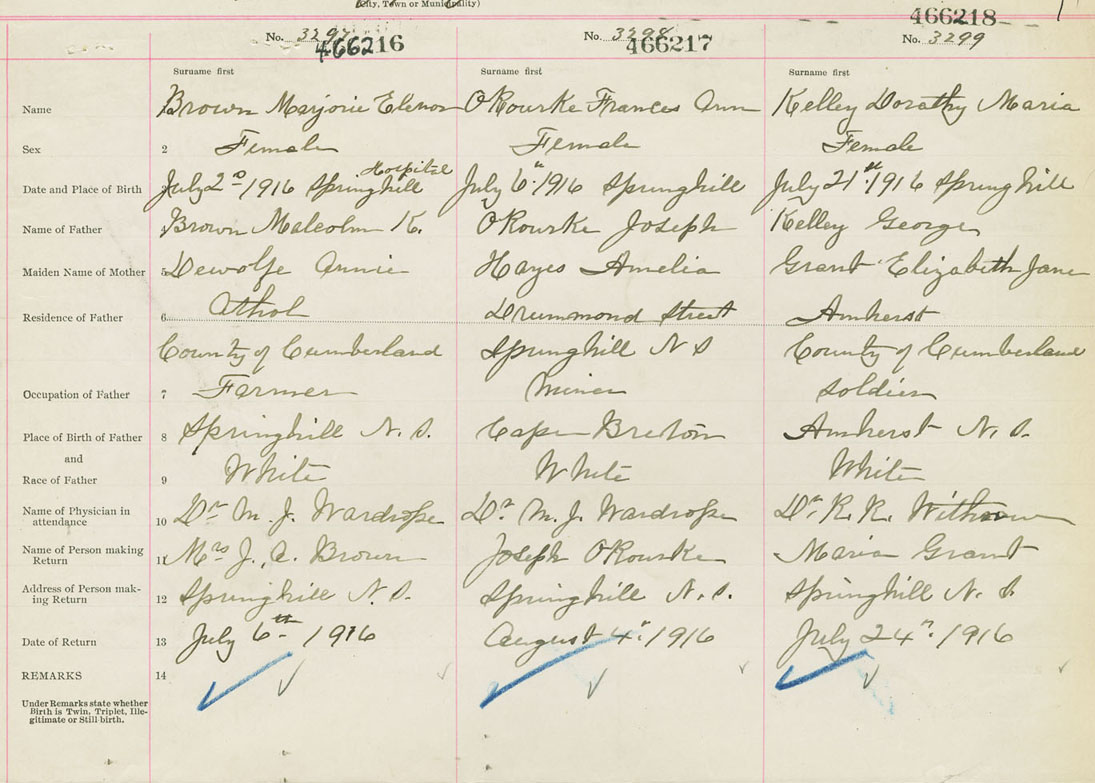 (City, Town or Municipality)
466218
No. 3297 No. 3298 No. 3299
466216 466217
Surname first Surname first Surname first
Name Brown Marjorie Elenor O'Rourke Frances Ann Kelley Dorathy Maria
Sex 2 Female Female Female
Hospital
Date and Place of Birth July 2nd 1916 Springhill July 6th 1916 Springhill July 21st 1916 Springhill
Name of Father Brown Malcolm K. O'Rourke Joseph Kelley George
Maiden Name of Mother 5 Dewolfe Annie Hayes Amelia Grant Elizabeth Jane
Residence of Father 6 Athol Drummond Street Amherst
County of Cumberland Springhill N S County of Cumberland
Occupation of Father 7 Farmer Miner Soldier
Place of Birth of Father 8 Springhill N. S. Cape Breton Amherst N. S.
and
Race of Father 9 White White White
Name of Physician in
attendance 10 Dr M. J. Wardrope Dr. M. J. Wardrope Dr R. K. Withrow
Name of Person making
Return 11 Mrs J. A. Brown Joseph O'Rourke Maria Grant
Address of Person mak-
ing Return 12 Springhill N. S. Springhill N. S. Springhill N. S.
Date of Return 13 July 6th 1916 August 4th 1916 July 24th 1916
REMARKS 14
Under Remarks state whether
Birth is Twin, Triplet, Ille-
gitimate or Still-birth.